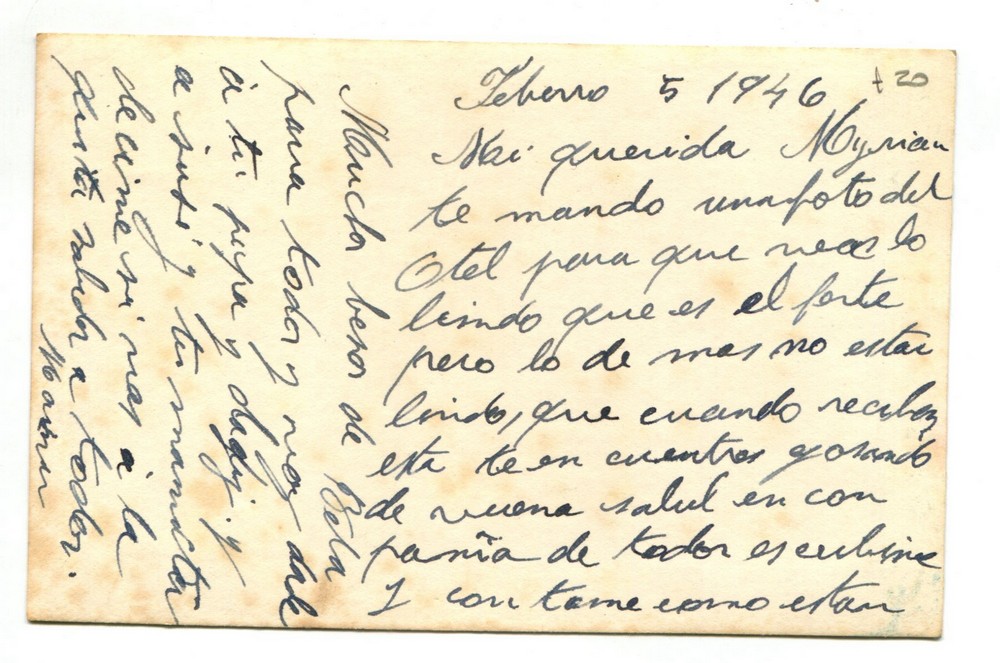 Febrero 5 1946
Mi querida Myrian
te mando una foto del
Otel para que veas lo
lindo que es el
pero lo de mas no esta
lindo, que cuando reciban
esta te en cuentres gosando
de vuena salud en con
pania de todos escribime
y con tame como estan
Mucho besos de Beba
para todos y
a tu papa y dady y
a susi y tu mamacita
decime si vas a la
saludos a todos.
+ 20